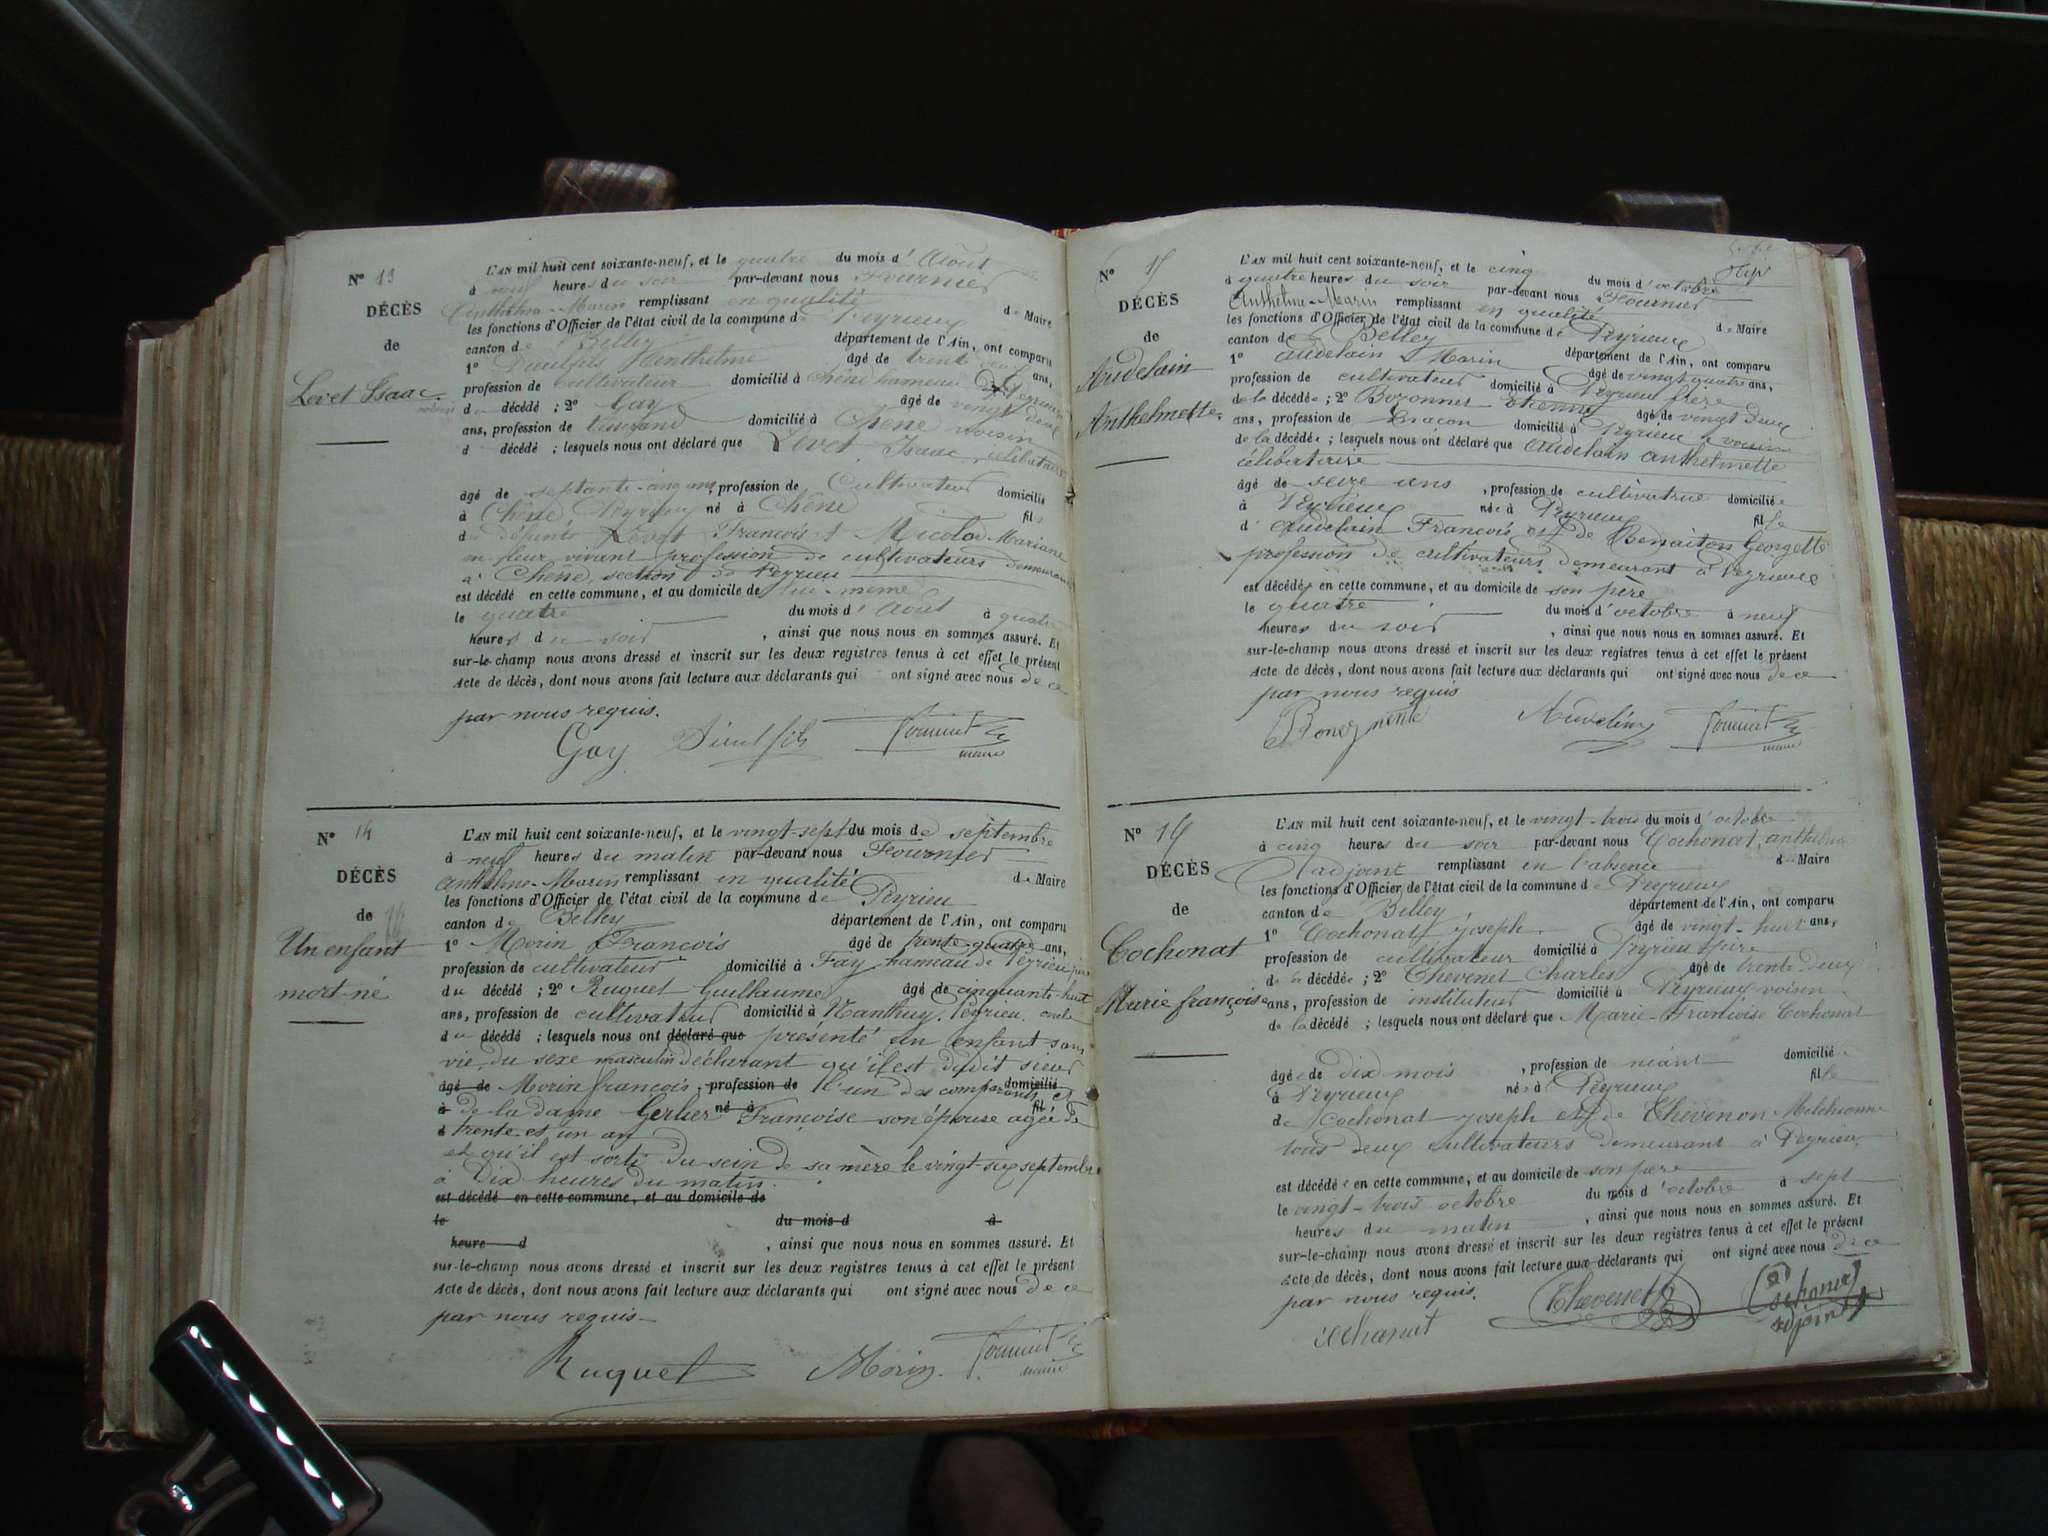 N° 13
DÉCÈS
de
Levet Isaac.
L'AN mil huit cent soixante-neuf, et le quatre du mois d'Août
à neuf heures du soir par-devant nous Fournier
Anthelme-Marin remplissant en qualité de Maire
les fonctions d'Officier de l'état civil de la commune de Peyrieu
canton de Belley département de l'Ain, ont comparu
1° Dieulfils Anthelme âgé de trente ans,
profession de Cultivateur domicilié à Chêne hameau de Peyrieu
du décédé ; 2° Gay âgé de vingt deux
ans, profession de tisserand domicilié à Chêne voisin
d décédé ; lesquels nous ont déclaré que Levet Isaac, célibataire
âgé de septante-cinq ans, profession de Cultivateur domicilié
à Chêne Peyrieu né à Chêne fils
de défunts Levet François et Micolod Mariane
en leur vivant profession de cultivateurs demeurant
à Chêne, section de Peyrieu
est décédé en cette commune, et au domicile de lui-même
le quatre du mois d'Août à quatre
heures du soir, ainsi que nous nous en sommes assuré. Et
sur-le-champ nous avons dressé et inscrit sur les deux registres tenus à cet effet le présent
Acte de décès, dont nous avons fait lecture aux déclarants qui ont signé avec nous de ce
par nous requis.
Gay Dieulfils Fournier
maire
N° 14
DÉCÈS
de
Un enfant
mort-né
L'AN mil huit cent soixante-neuf, et le vingt-sept du mois de septembre
à neuf heures du matin par-devant nous Fournier
Anthelme-Marin remplissant en qualité de Maire
les fonctions d'Officier de l'état civil de la commune de Peyrieu
canton de Belley département de l'Ain, ont comparu
1° Morin François âgé de trente-quatre ans,
profession de cultivateur domicilié à Fay hameau de Peyrieu père
du décédé ; 2° Ruguet Guillaume âgé de cinquante-huit
ans, profession de cultivateur domicilié à Nanthuy, Peyrieu oncle
du décédé ; lesquels nous ont déclaré que présenté un enfant sans
vie, du sexe masculin déclarant qu'il est dudit sieur
âgé de Morin françois, profession de l'un des comparants domicilié et
à de la dame Gerlier né à Françoise son épouse agée de fil
d trente et un an
et qu'il est sorti du sein de sa mère le vingt-six septembre
à Dix heures du matin.
est décédé en cette commune, et au domicile de
le du mois d à
heure d , ainsi que nous nous en sommes assuré. Et
sur-le-champ nous avons dressé et inscrit sur les deux registres tenus à cet effet le présent
Acte de décès, dont nous avons fait lecture aux déclarants qui ont signé avec nous de ce
par nous requis
Ruguet Morin. Fournier
maire
N° 15
DÉCÈS
de
Audelain
Anthelmette.
L'AN mil huit cent soixante-neuf, et le cinq du mois d'octobre
à quatre heures du soir par-devant nous Fournier
Anthelme-Marin remplissant en qualité de Maire
les fonctions d'Officier de l'état civil de la commune de Peyrieu
canton de Belley département de l'Ain, ont comparu
1° Audelain Marin âgé de vingt quatre ans,
profession de cultivateur domicilié à Peyrieu frère
de la décédée ; 2° Bozonnet Etienne âgé de vingt deux
ans, profession de maçon domicilié à Peyrieu voisin
de la décédée ; lesquels nous ont déclaré que Audelain Anthelmette
célibataire
âgé de seize ans, profession de cultivatrice domiciliée
à Peyrieu née à Peyrieu fille
d'Audelain François et de Benaiton Georgette
profession de cultivateurs demeurant à Peyrieu
est décédée en cette commune, et au domicile de son père
le quatre du mois d'octobre à neuf
heures du soir, ainsi que nous nous en sommes assuré. Et
sur-le-champ nous avons dressé et inscrit sur les deux registres tenus à cet effet le présent
Acte de décès, dont nous avons fait lecture aux déclarants qui ont signé avec nous de ce
par nous requis
Fournier
maire
N°
DÉCÈS
de
Cochonat
Marie françoise
L'AN mil huit cent soixante-neuf, et le vingt-trois du mois d'octobre
à cinq heures du soir par-devant nous Cochonat, anthelme
adjoint remplissant en l'absence de Maire
les fonctions d'Officier de l'état civil de la commune de Peyrieu
canton de Belley département de l'Ain, ont comparu
1° Cochonat Joseph. âgé de vingt-huit ans,
profession de cultivateur domicilié à Peyrieu père
de la décédée ; 2° Thevenet Charles âgé de trente-deux
ans, profession de instituteur domicilié à Peyrieu voisin
de la décédé ; lesquels nous ont déclaré que Marie-Françoise Cochonat
âgée de dix mois, profession de néant domicilié
à Peyrieu née à Peyrieu fille
de Cochonat Joseph et de Thevenon Melchionne
tous deux cultivateurs demeurant à Peyrieu.
est décédée en cette commune, et au domicile de son père
le vingt-trois octobre du mois d'octobre à sept
heures du matin, ainsi que nous nous en sommes assuré. Et
sur-le-champ nous avons dressé et inscrit sur les deux registres tenus à cet effet le présent
Acte de décès, dont nous avons fait lecture aux déclarants qui ont signé avec nous de ce
par nous requis.
Thevenet Cochonat
adjoint
Cochonat